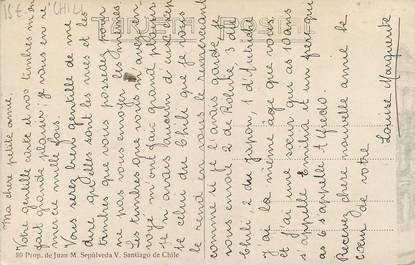 Ma chère petite amie.
Votre gentille carte et vos timbres m'ont
fait grande plaisir: je vous en re-
mercie mille fois.
Vous serez bien gentille de me
dire quelles sont les vues et les
timbres que vous possedez pour
ne pas vous envoyer les mêmes
Les timbres que vous m'avez en
voyé m'ont fait grand plaisir
je n'en avais aucun d'eux excep
té celui du Chili que je vous
le rend en vous le remerciant
comme si je l'avais gardé je
vous envoie 2 de Bolivie, 3 du
Chili 2 du Japon, 1 d'Autriche
J'ai la même âge que vous
et j'ai une sœur qui as 10 ans
s'appelle Emilia et un frère que
as 6 s'appelle Alfredo.
Recevez chère nouvelle amie le
cœur de votre
Louise Marguerite
CHILI
80 Prop. de Juan M. Sepúlveda V. Santiago de Chile